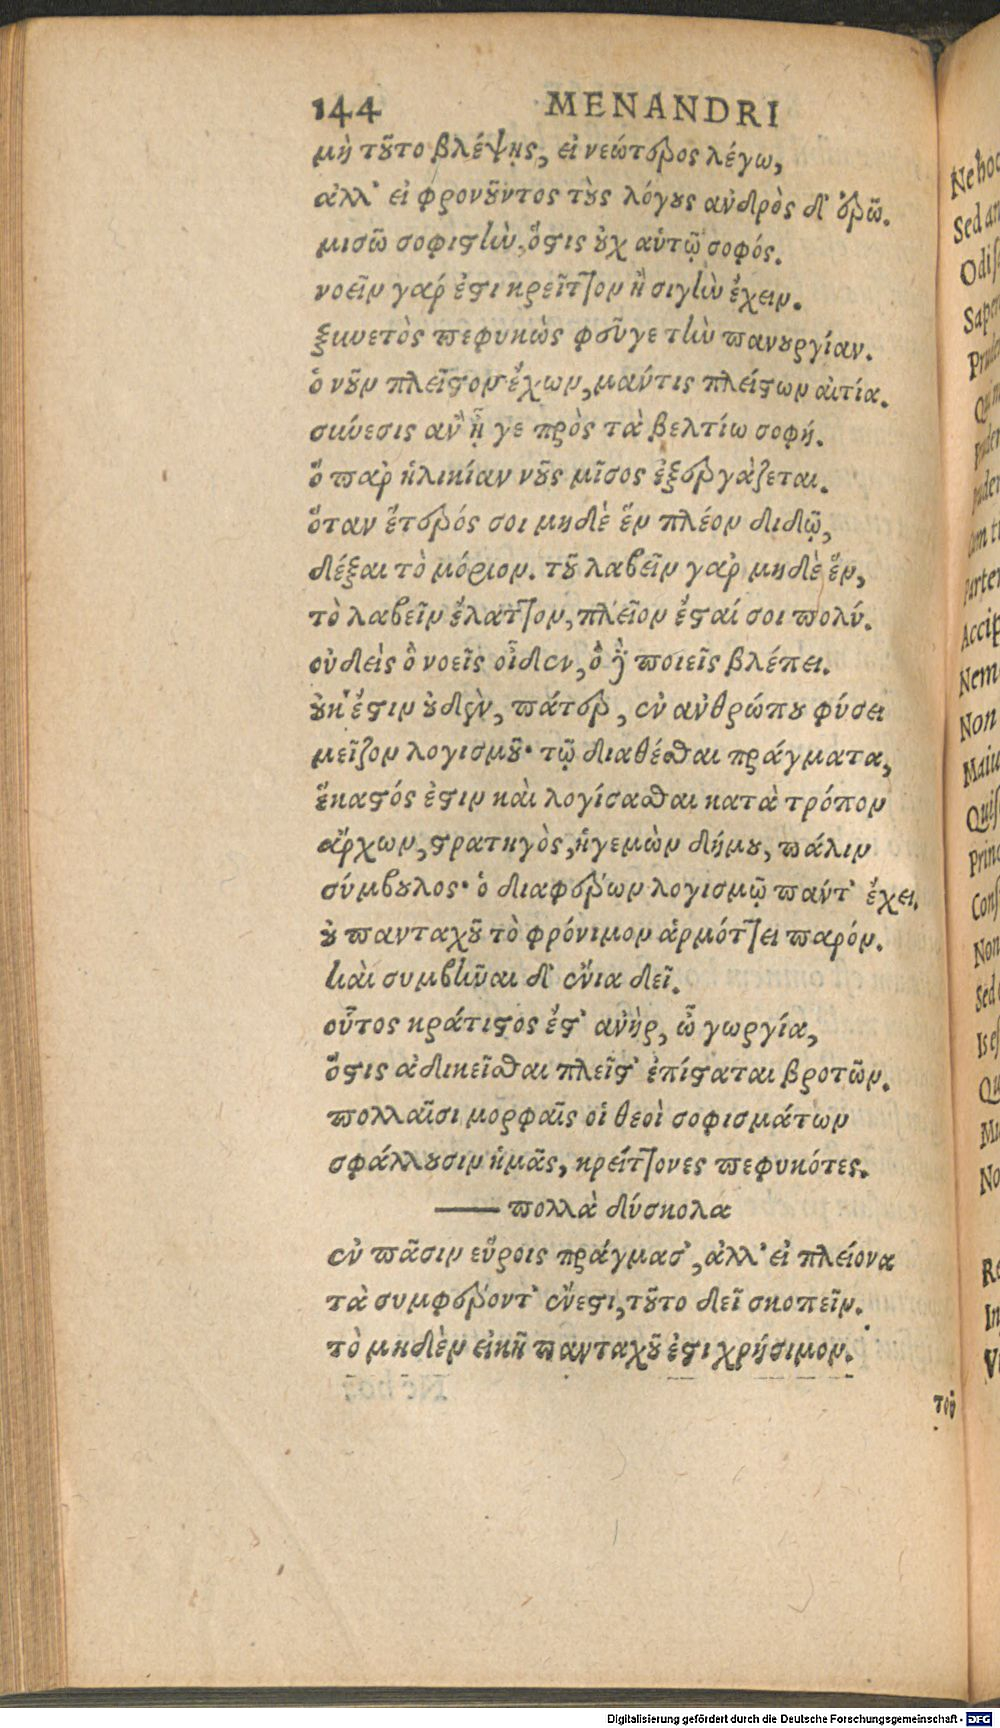 144 MENANDRI
μὴ τοῦτο βλέψῃς, εἰ νεώτερος λέγω,
ἀλλ' εἰ φρονοῦντος τοὺς λόγους ἀνδρὸς δ' ἐρῶ.
μισῶ σοφιστὴν, ὅστις οὐχ αὑτῷ σοφός.
νοεῖν γάρ ἐστι κρεῖττον ἢ σιγὴν ἔχειν.
ξυνετὸς πεφυκὼς φεῦγε τὴν πανουργίαν.
ὁ νοῦν πλεῖστον ἔχων, μάντις πλείστων αἰτία.
σύνεσις ἂν ᾖ γε πρὸς τὰ βελτίω σοφή.
ὅ παρ ἡλικίαν νοῦς μῖσος ἐξεργάζεται.
ὅταν ἕτερός σοι μηδὲ ἓν πλέον διδῷ,
δέξαι τὸ μόριον. τοῦ λαβεῖν γὰρ μηδὲ ἓν,
τὸ λαβεῖν ἔλαττον, πλεῖον ἔσται σοι πολύ.
οὐδεὶς ὃ νοεῖς οἶδεν, ὃ δὲ ποιεῖς βλέπει.
οὐκ ἔστιν οὐδὲν, πάτερ, ἐν ἀνθρώπου φύσει
μεῖζον λογισμοῦ· τῷ διαθέσθαι πράγματα,
ἕκαστός ἐστιν καὶ λογίσασθαι κατὰ τρόπον
ἄρχων, στρατηγὸς, ἡγεμὼν δήμου, πάλιν
σύμβουλος· ὁ διαφέρων λογισμῷ πάντ' ἔχει.
οὐ πανταχοῦ τὸ φρόνιμον ἁρμόττει παρόν.
καὶ συμβῆναι δ' ἔνια δεῖ.
οὗτος κράτιστος ἔστ' ἀνὴρ, ὦ γωργία,
ὅστις ἀδικεῖσθαι πλεῖστ' ἐπίσταται βροτῶν.
πολλαῖσι μορφαῖς οἱ θεοὶ σοφισμάτων
σφάλλουσιν ἡμᾶς, κρείττονες πεφυκότες.
—— πολλὰ δύσκολα
ἐν πᾶσιν εὕροις πράγμασ', ἀλλ' εἰ πλείονα
τὰ συμφέροντ' ἔνεστι, τοῦτο δεῖ σκοπεῖν.
τὸ μηδὲν εἰκῆ πανταχοῦ ἐστι χρήσιμον.
τοῦ
Ne hoc
Sed
Nem
Non
Digitalisierung gefördert durch die Deutsche Forschungsgemeinschaft - DFG